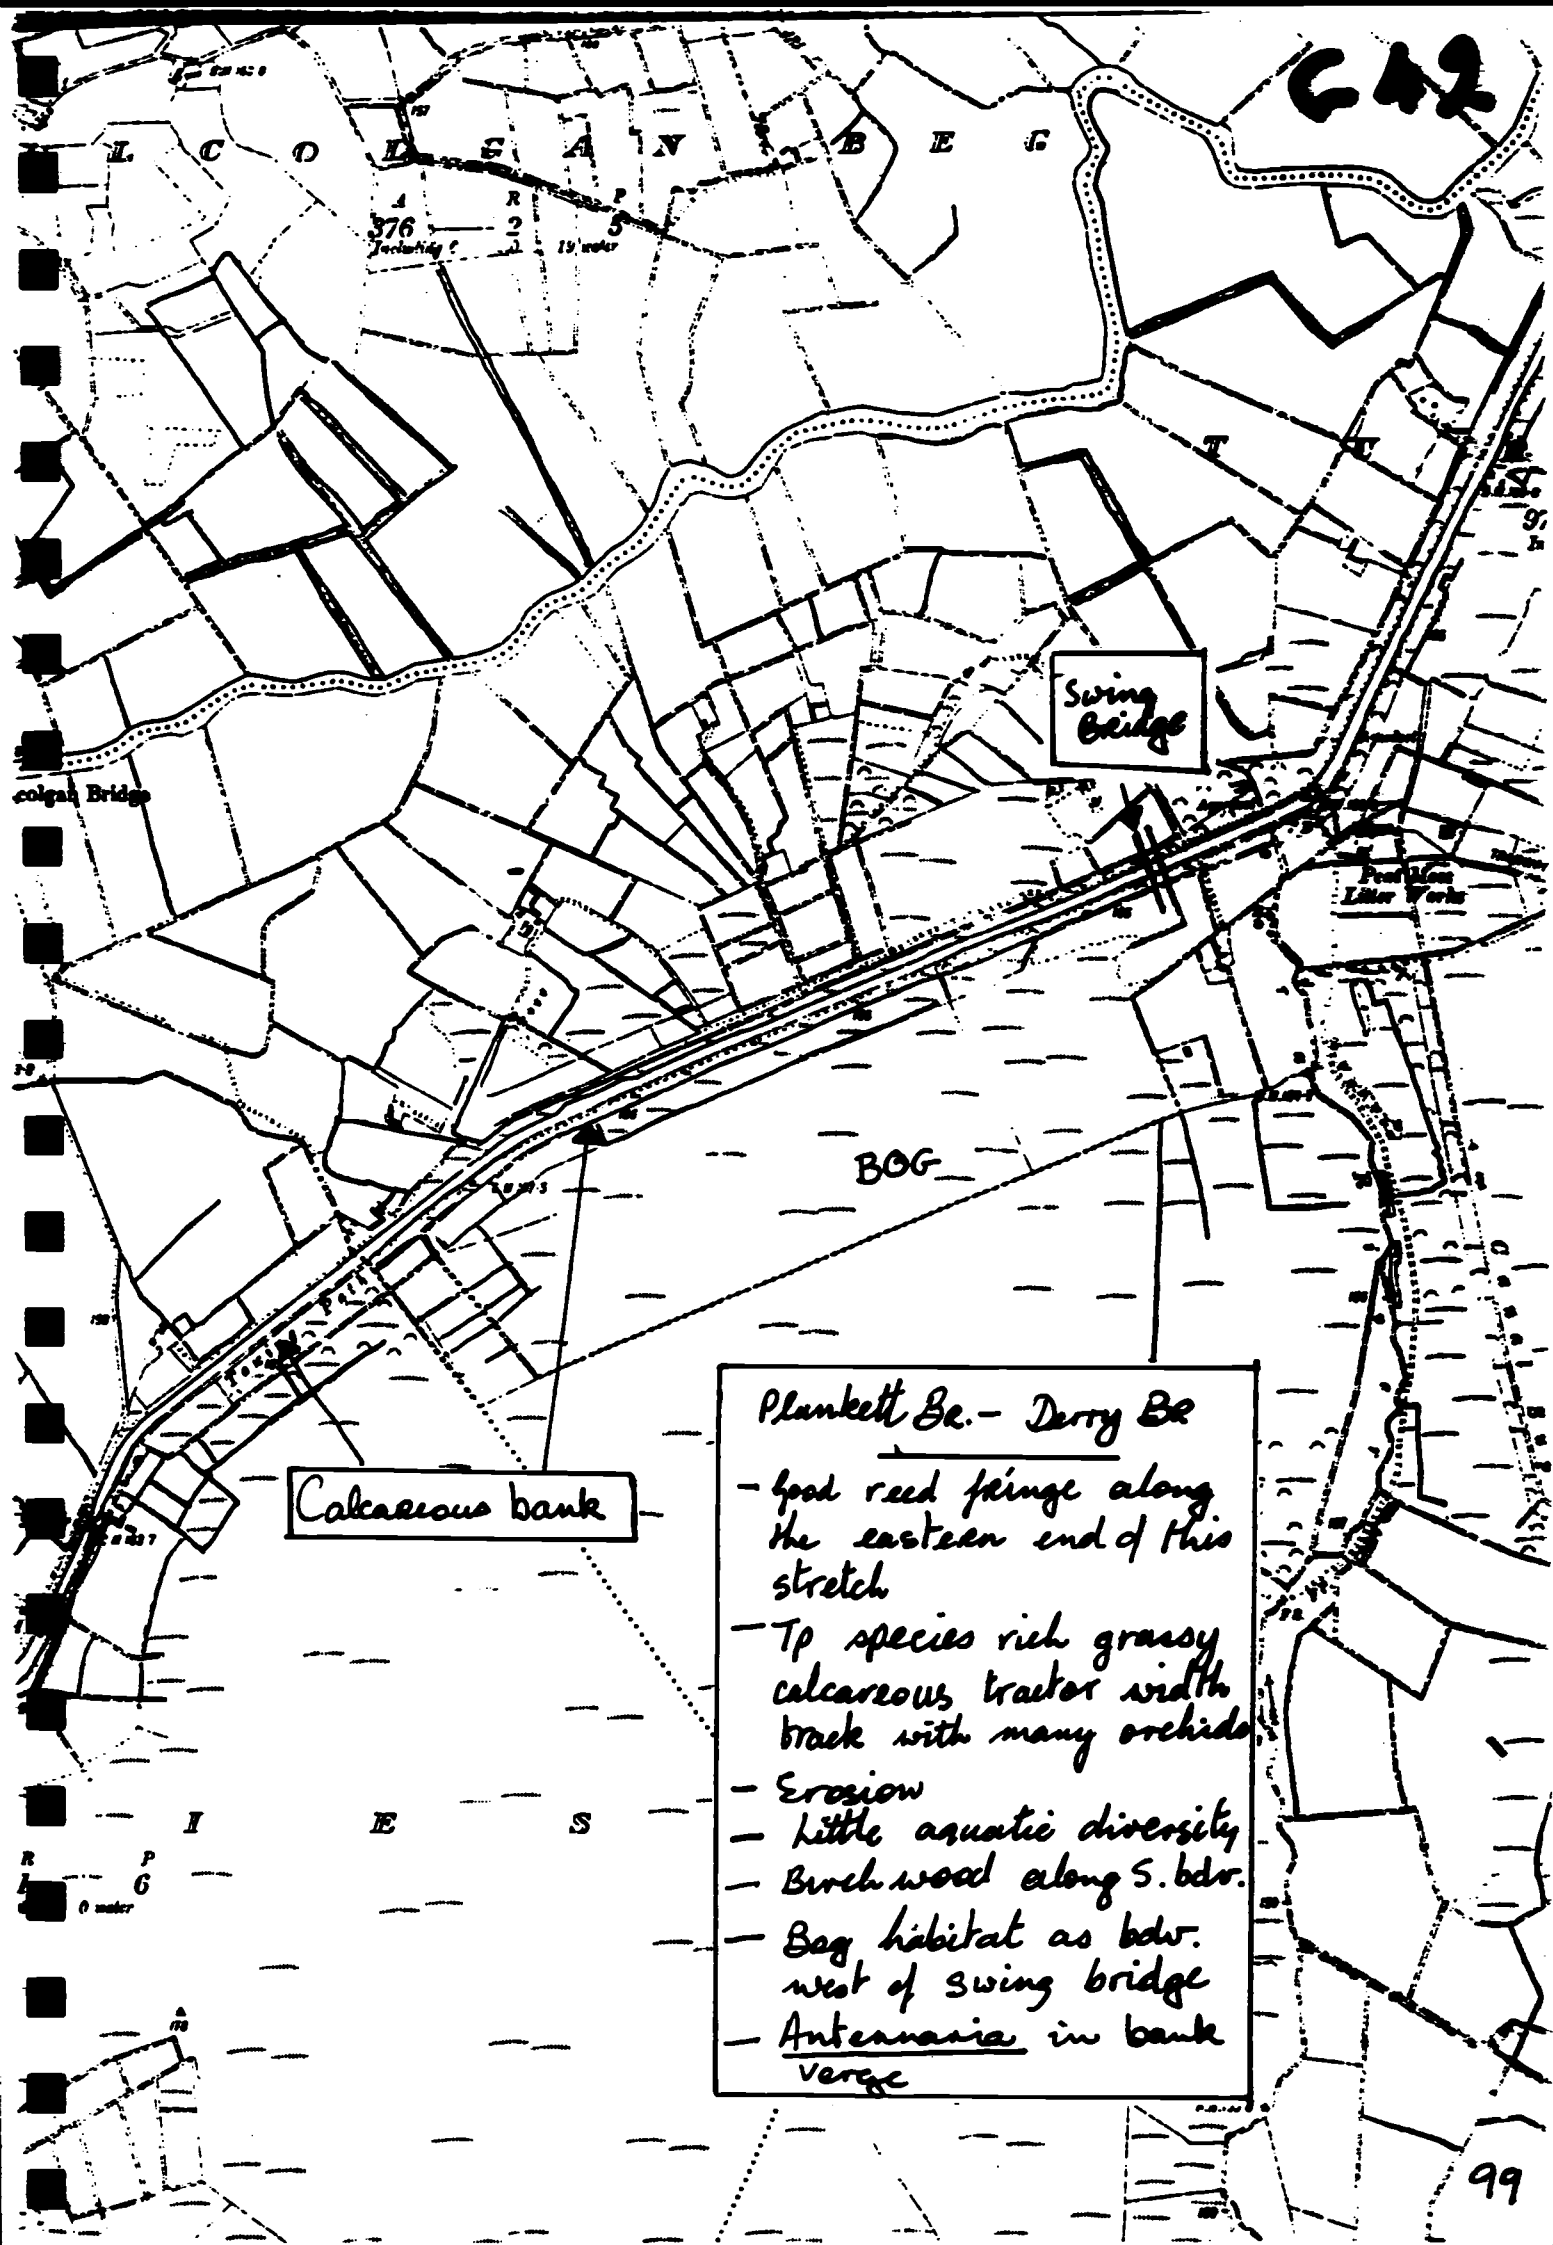 C42
L C O L G A N B E G
A R P
376 2 5
Including
19 water
157
T
Swing
Bridge
colgan Bridge
Peat Moss
Litter Works
BOG
Calcareous bank
Plunkett Br. - Derry BR
- Good reed fringe along
the eastern end of this
stretch
- Tp species rich grassy
calcareous tractor width
track with many orchids
- Erosion
- Little aquatic diversity
- Birch wood along S. bdr.
- Bog habitat as bdr.
west of swing bridge
- Antennaria in bank
verge
I E S
R P
6
0 water
99